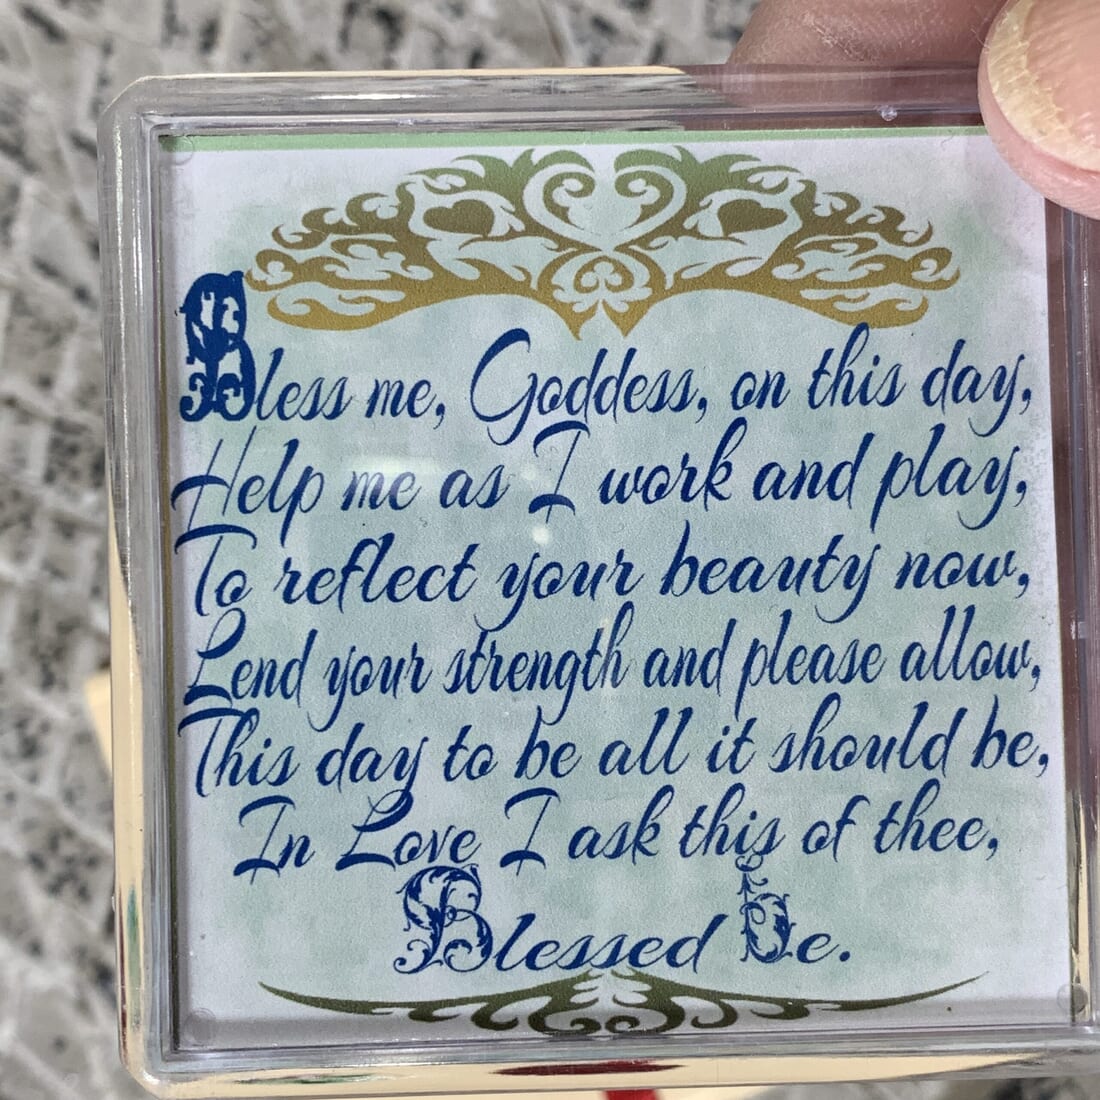 Bless me, Goddess, on this day,
Help me as I work and play,
To reflect your beauty now,
Lend your strength and please allow,
This day to be all it should be,
In Love I ask this of thee,
Blessed be.